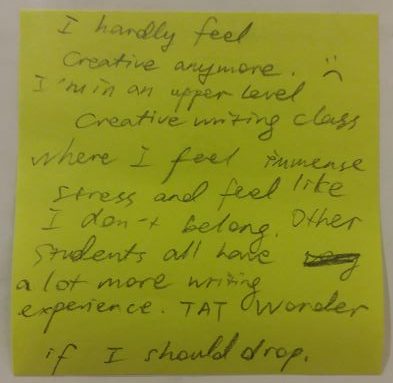 I hardly feel
Creative anymore. :(
I'm in an upper level
Creative writing class
where I feel immense
stress and feel like
I don't belong. Other
students all have
a lot more writing
experience. TAT Wonder
if I should drop.